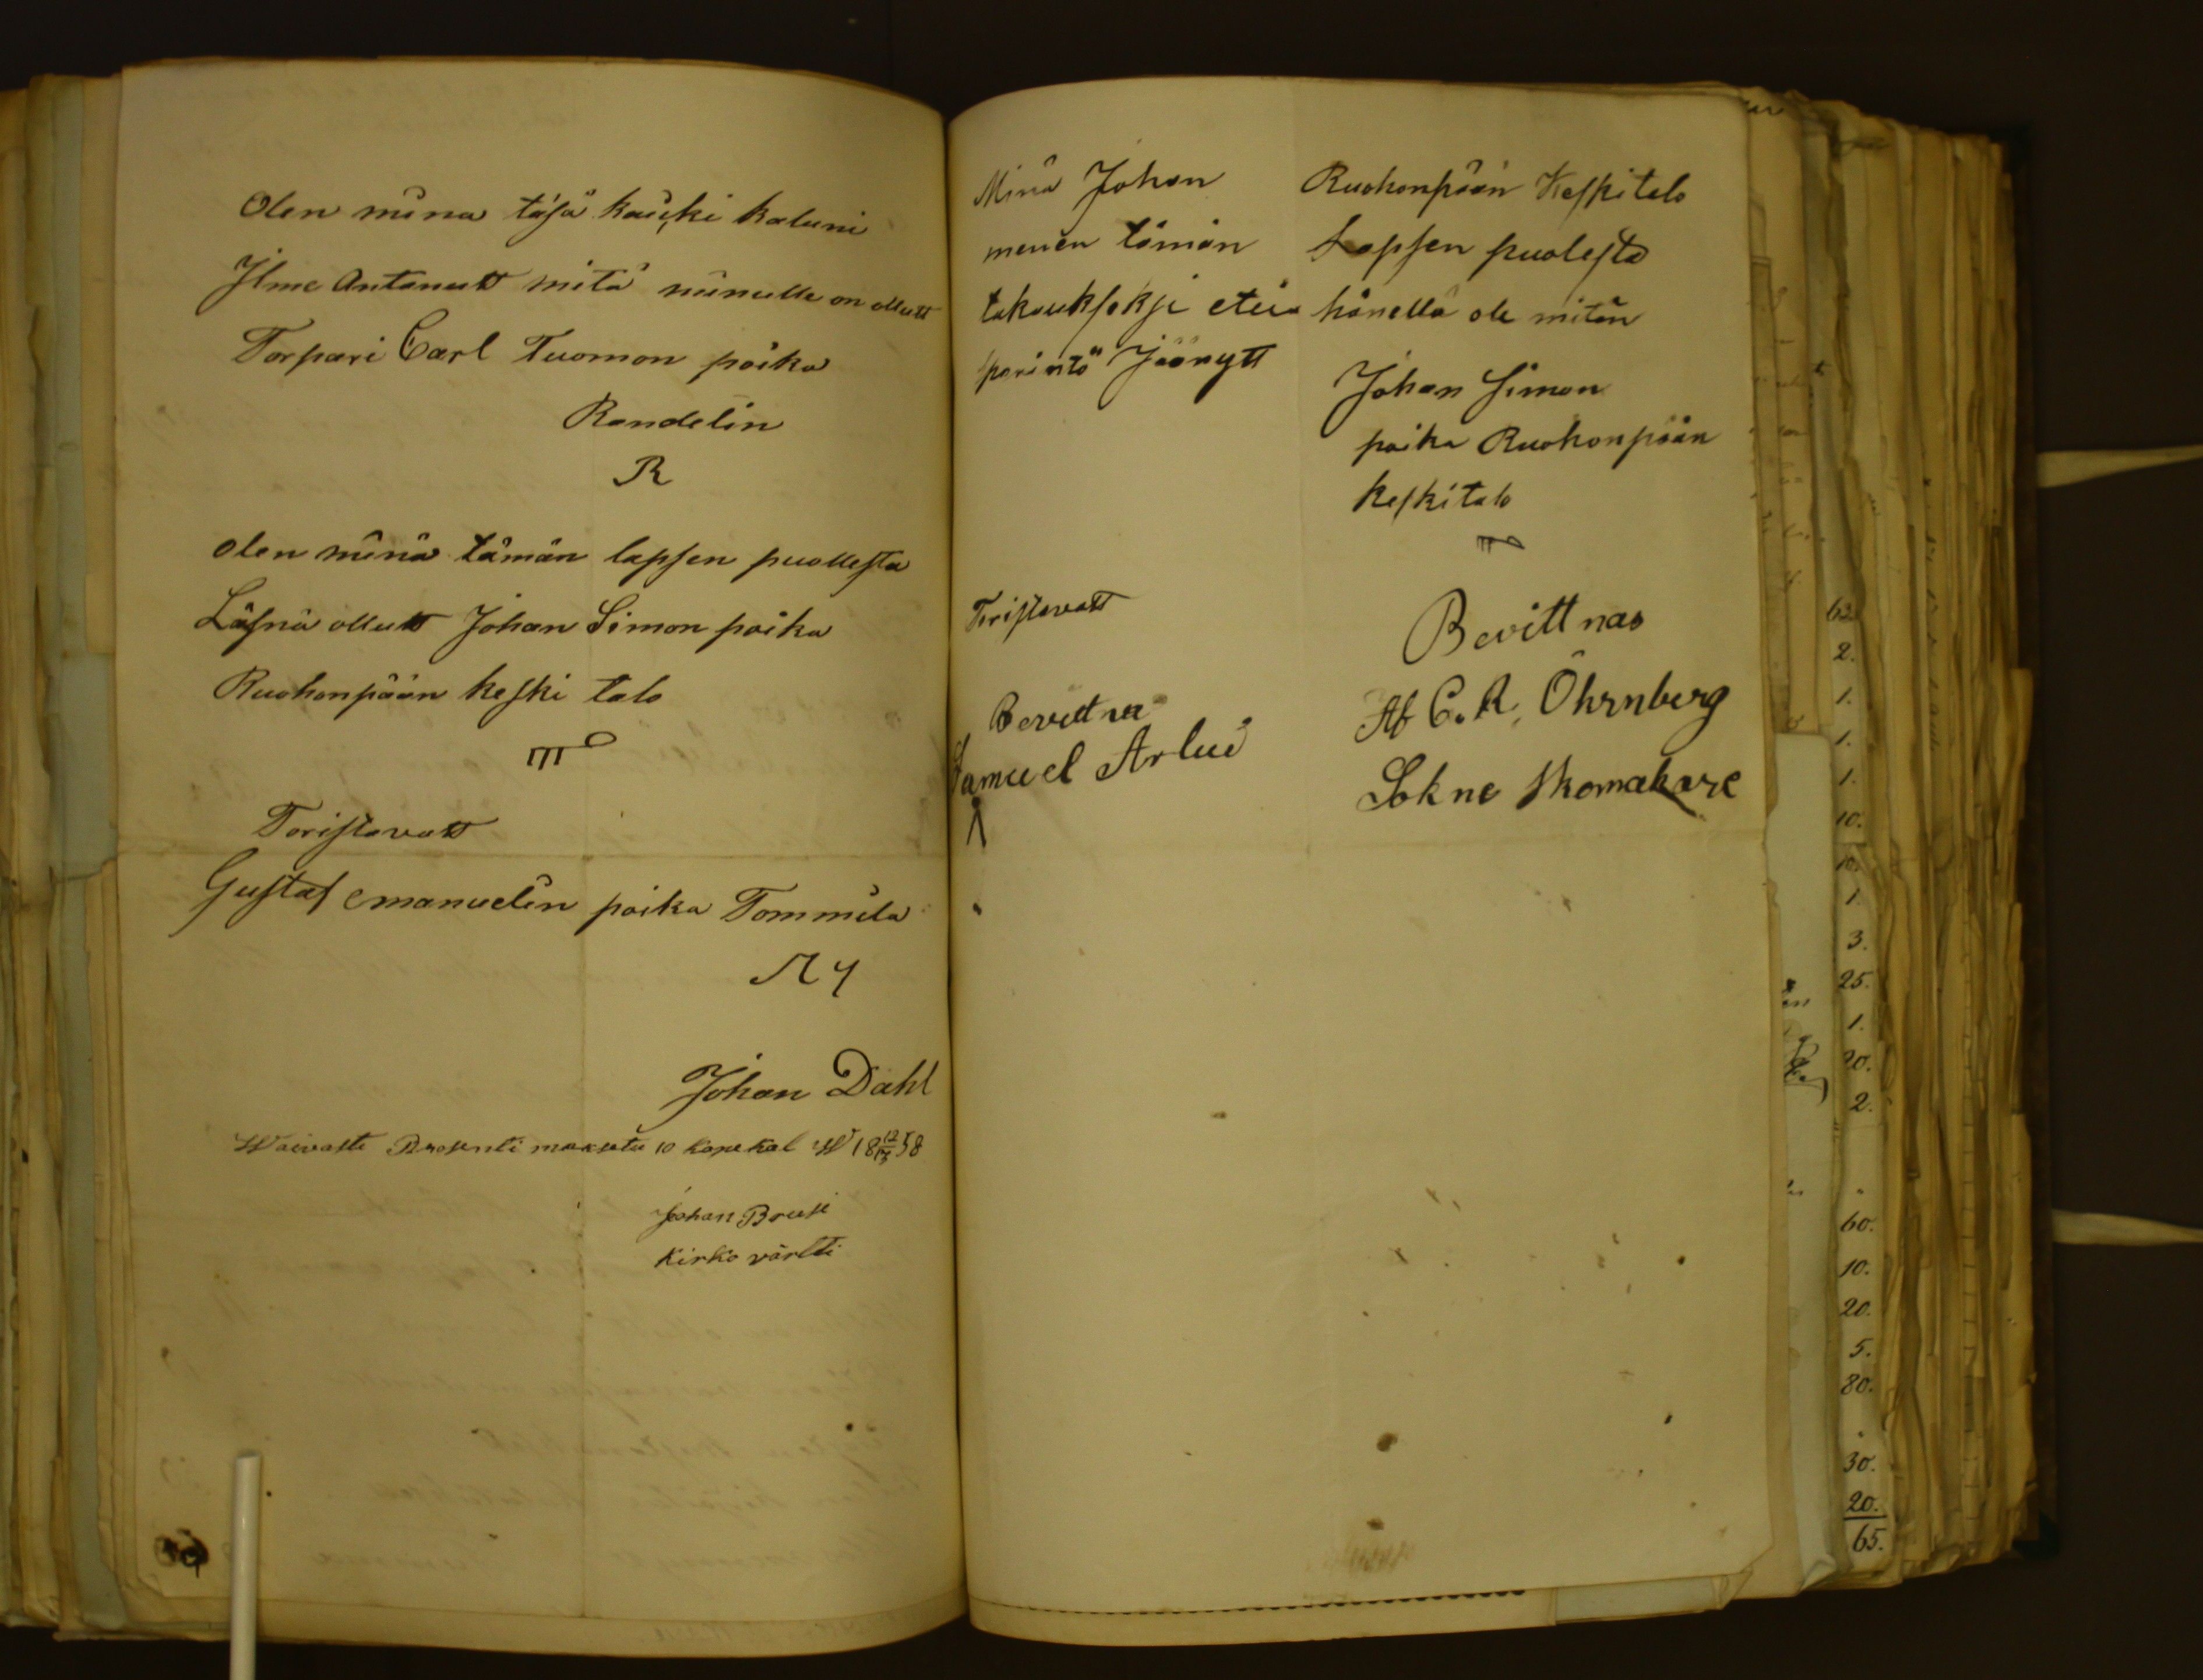 Olen minä täsä kaicki kaluni
Ilme Antanutt mitä minulla on ollutt
Torpari Carl Tuomon poika
Randelin
R
olen minä tämän lapsen puollesta
Läsnä ollutt Johan Simon poika
Ruohonpään keski talo
Toristavatt
Gustaf emanuelin poika Tommila
Johan Dahl
Waivaste Prosenti maxsetu 10 kopekal 18 12/13 58
Johan Brusi
Kirko värtti
Minä Johan Ruohonpään Keskitalo
menen tämän Lapsen puolesta
takaukseksi etei hänellä ole mitän
perintö Jäänytt
Johan Simon
poika Ruohonpään
keskitalo
Toristavatt
Bevittnar
Samuel Arlui
Bevittnas
Af C. R. Öhrnberg
Sokne Skomakare
62.
2.
1.
1.
1.
10.
10.
1.
3.
25.
1.
20.
2.
60.
10.
20.
5.
80.
30.
20.
65.